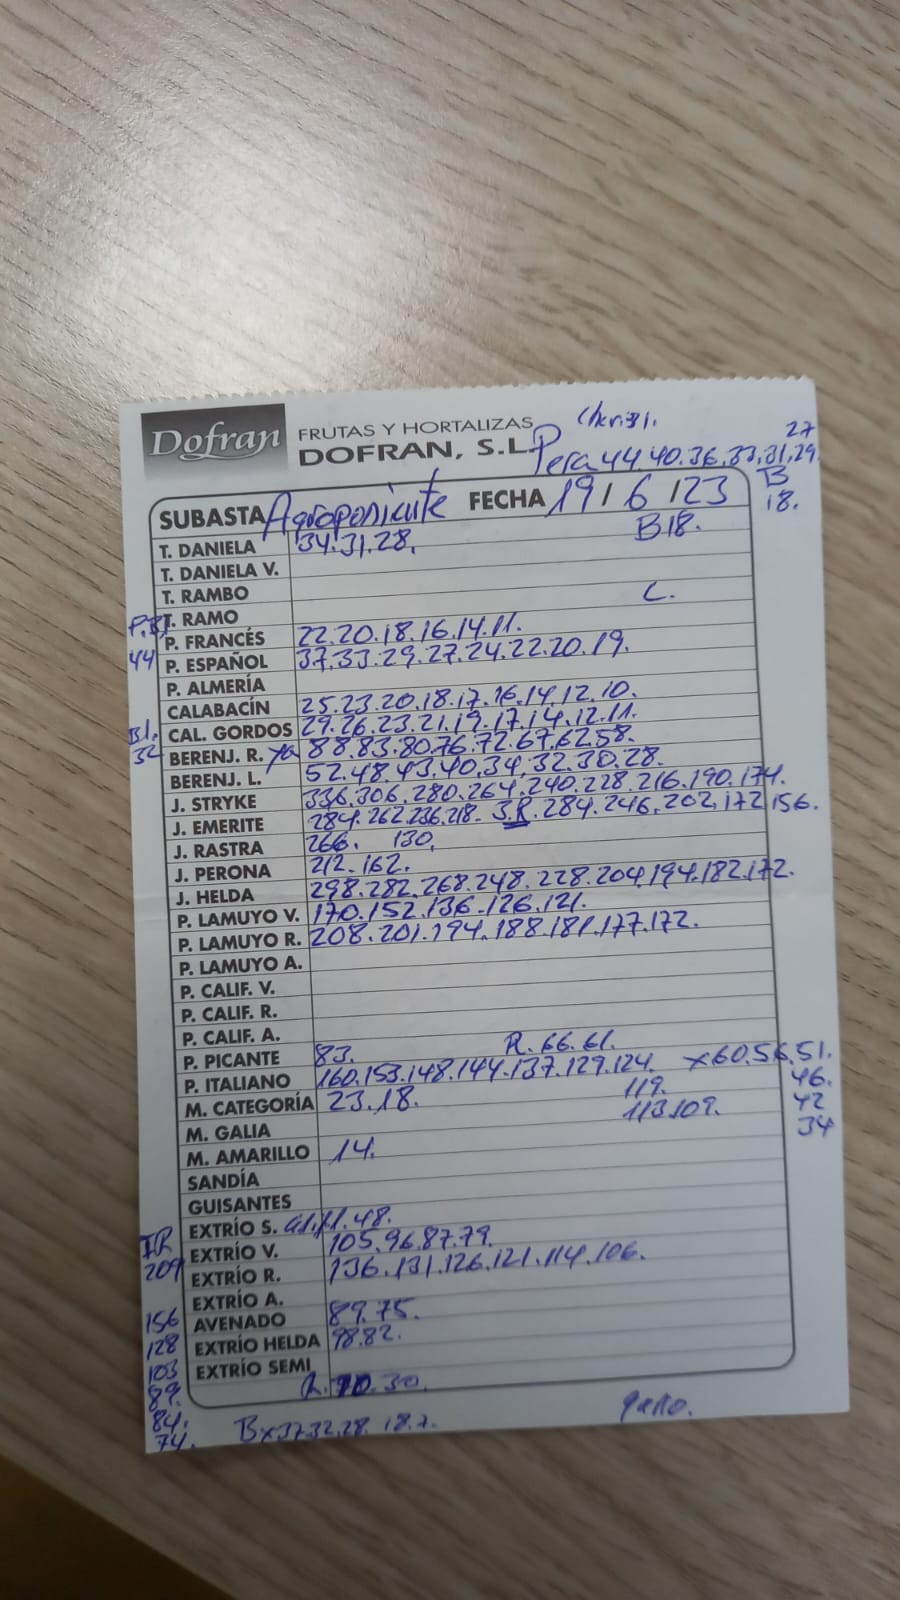 Dofran FRUTAS Y HORTALIZAS
DOFRAN, S.L.
27
Pera 44.40.36.33.31.29
B
18.
SUBASTA Agroponiente FECHA 19/6/23
T. DANIELA 34.31.28. B18.
T. DANIELA V.
T. RAMBO C.
T. RAMO
P. FRANCÉS 22.20.18.16.14.11.
44 P. ESPAÑOL 37.33.29.27.24.22.20.19.
P. ALMERÍA
CALABACÍN 25.23.20.18.17.16.14.12.10.
Bl. CAL. GORDOS 29.26.23.21.19.17.14.12.11.
32 BERENJ. R. 88.83.80.76.72.67.62.58.
BERENJ. L. 52.48.43.40.34.32.30.28.
J. STRYKE 336.306.280.264.240.228.216.190.174.
J. EMERITE 284.262.236.218. S.R. 284.246.202.172.156.
J. RASTRA 266. 130.
J. PERONA 212.162.
J. HELDA 298.282.268.248.228.204.194.182.172.
P. LAMUYO V. 170.152.136.126.121.
P. LAMUYO R. 208.201.194.188.181.177.172.
P. LAMUYO A.
P. CALIF. V.
P. CALIF. R.
P. CALIF. A.
P. PICANTE 83. R.66.61.
P. ITALIANO 160.153.148.144.137.129.124. x60.56.51.
119. 46.
M. CATEGORÍA 23.18.
113.109. 42
M. GALIA 34
M. AMARILLO 14.
SANDÍA
GUISANTES
EXTRÍO S. 48.
EXTRÍO V. 105.96.87.79.
209 EXTRÍO R. 136.131.126.121.114.106.
EXTRÍO A.
156 AVENADO 89.75.
128 EXTRÍO HELDA 98.82.
103 EXTRÍO SEMI
89.
84.
74. Bx37.32.28. 18.7.